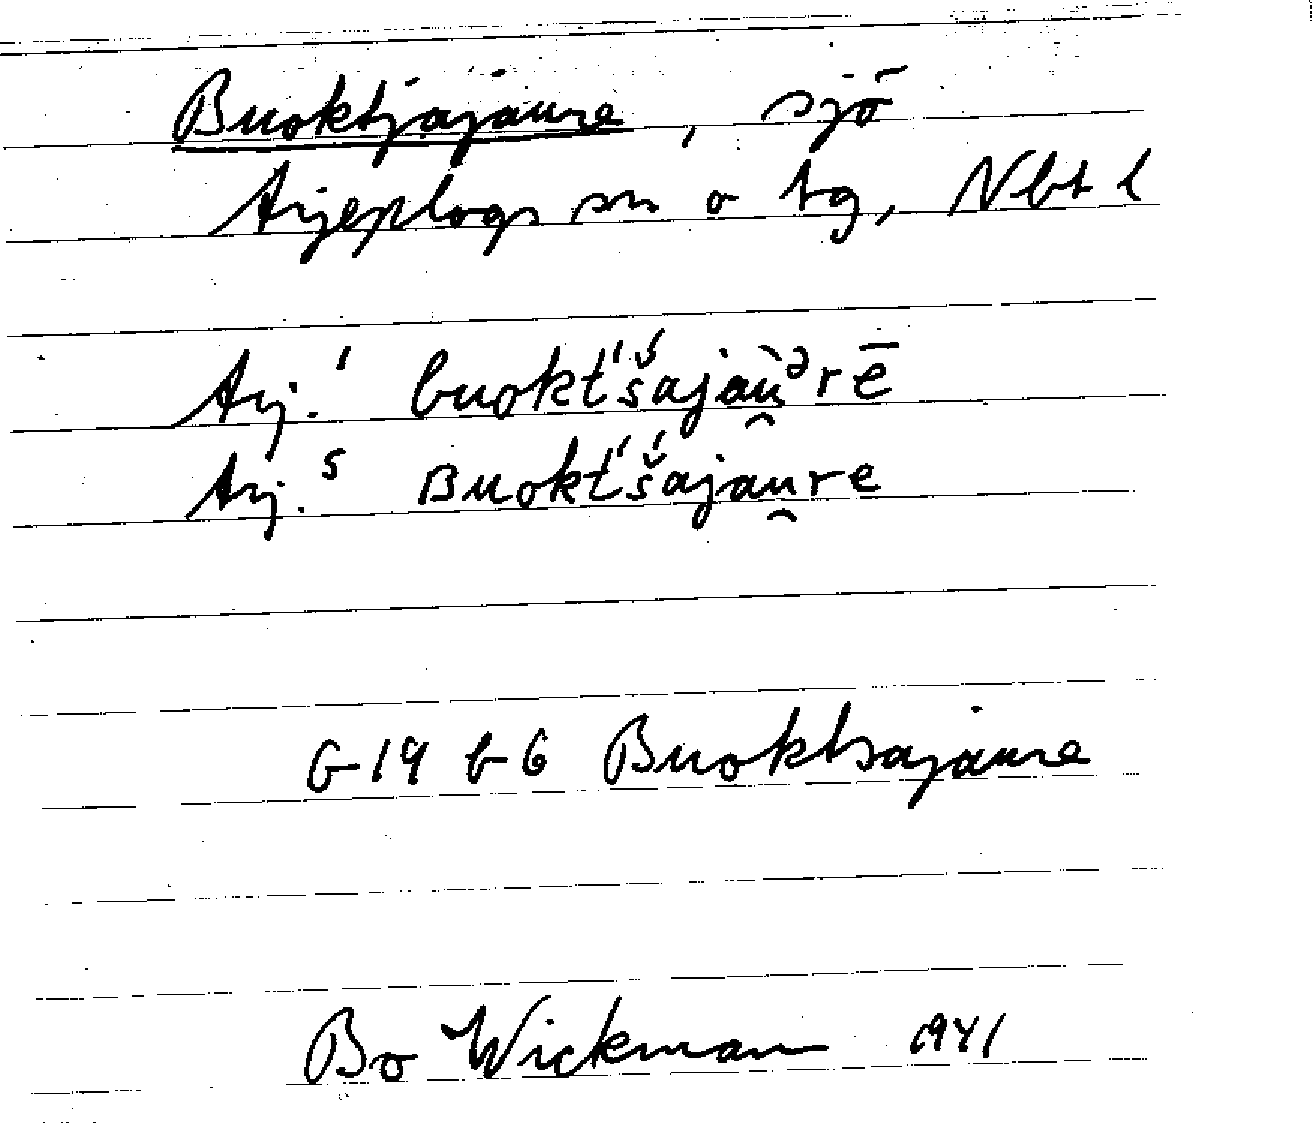 Buoktjajaure, sjö
Arjeplogs sn o tg, Nbt l
Arj.ˡ buokt́š́ajaù̯ᵊrē
Arj.ˢ ʙuokt́š́ajau̯re
G 19 b 6 Buoktsajaure
Bo Wickman 1941